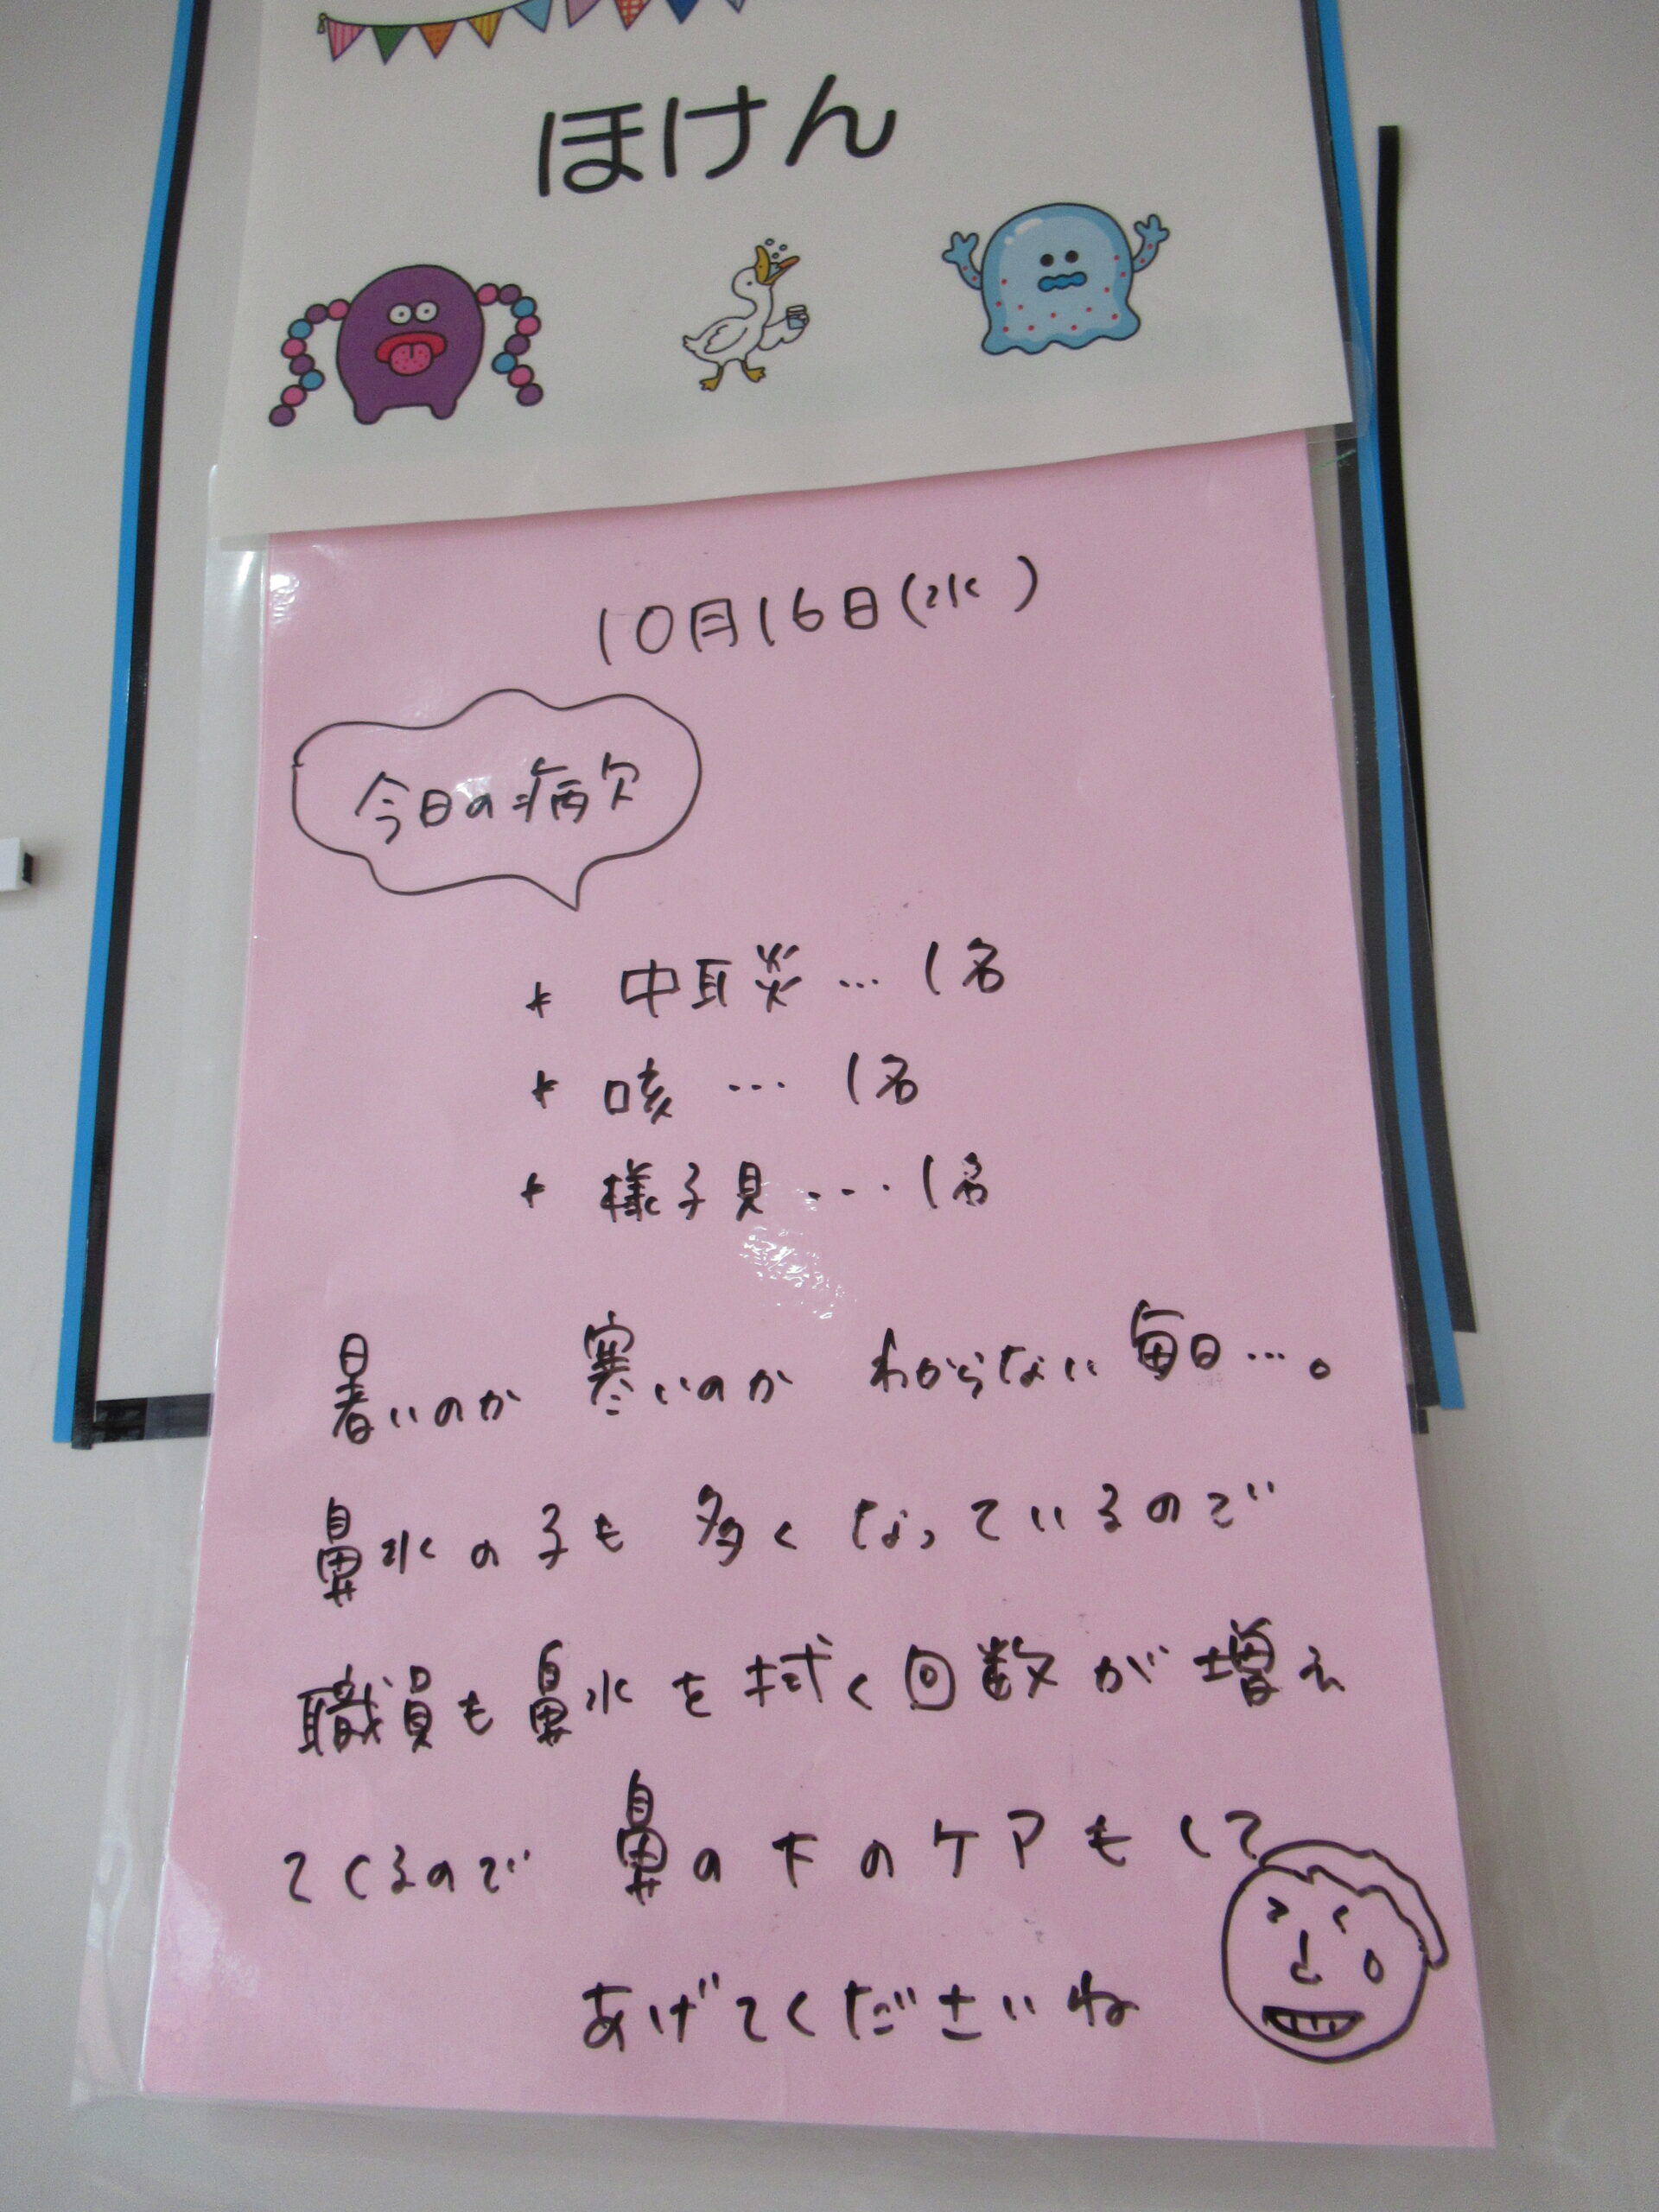 ほけん
10月16日(水)
今日の病欠
* 中耳炎…1名
* 咳…1名
* 様子見…1名
暑いのか 寒いのか わからない毎日…。
鼻水の子も 多くなっているので
職員も鼻水を拭く回数が増え
てくるので 鼻の下のケアもして
あげてくださいね